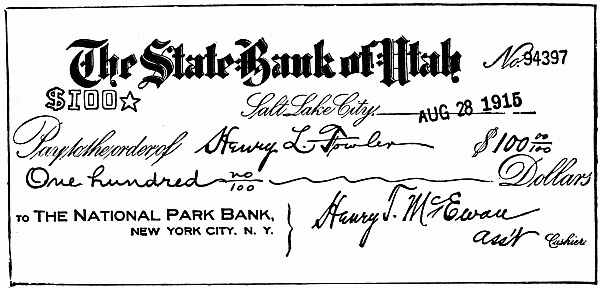 The State Bank of Utah No. 94397
$100☆
Salt Lake City, AUG 28 1915
Pay to the order of Henry L. Fowler $100 00/100
One hundred no/100 Dollars
TO THE NATIONAL PARK BANK,
NEW YORK CITY. N. Y.
Henry T. McEwan
ass't Cashier